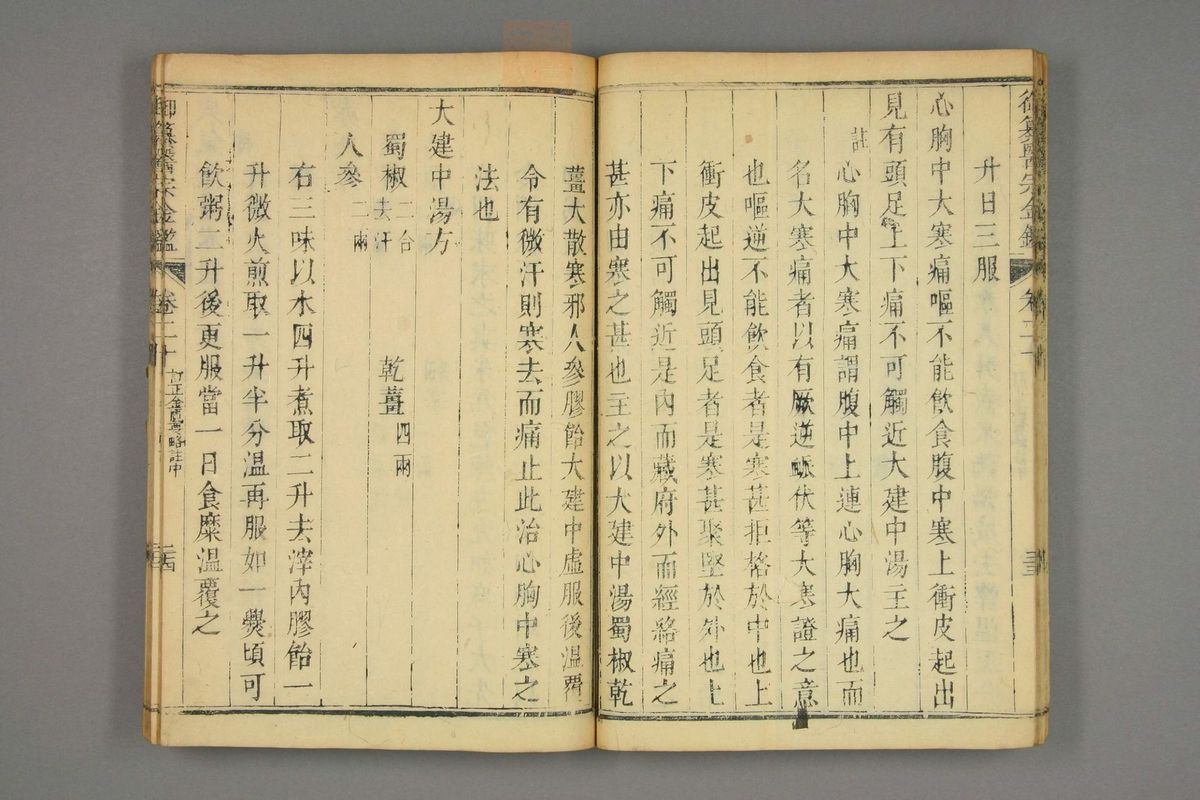 御纂醫宗金鑑
卷二十
升日三服
心胸中大寒痛嘔不能飲食腹中寒上衝皮起出
見有頭足上下痛不可觸近大建中湯主之
註心胸中大寒痛謂腹中上連心胸大痛也而
名大寒痛者以有厥逆脈伏等大寒證之意
也嘔逆不能飲食者是寒甚拒格於中也上
衝皮起出見頭足者是寒甚聚堅於外也上
下痛不可觸近是內而藏府外而經絡痛之
甚亦由寒之甚也主之以大建中湯蜀椒乾
薑大散寒邪人參膠飴大建中虛服後溫覆
令有微汗則寒去而痛止此治心胸中寒之
法也
大建中湯方
蜀椒二合去汗 乾薑四兩
人參二兩
右三味以水四升煮取二升去滓內膠飴一
升微火煎取一升半分溫再服如一炊頃可
飲粥二升後更服當一日食糜溫覆之
御纂醫宗金鑑
卷二十
訂正金匱要略註中
二四